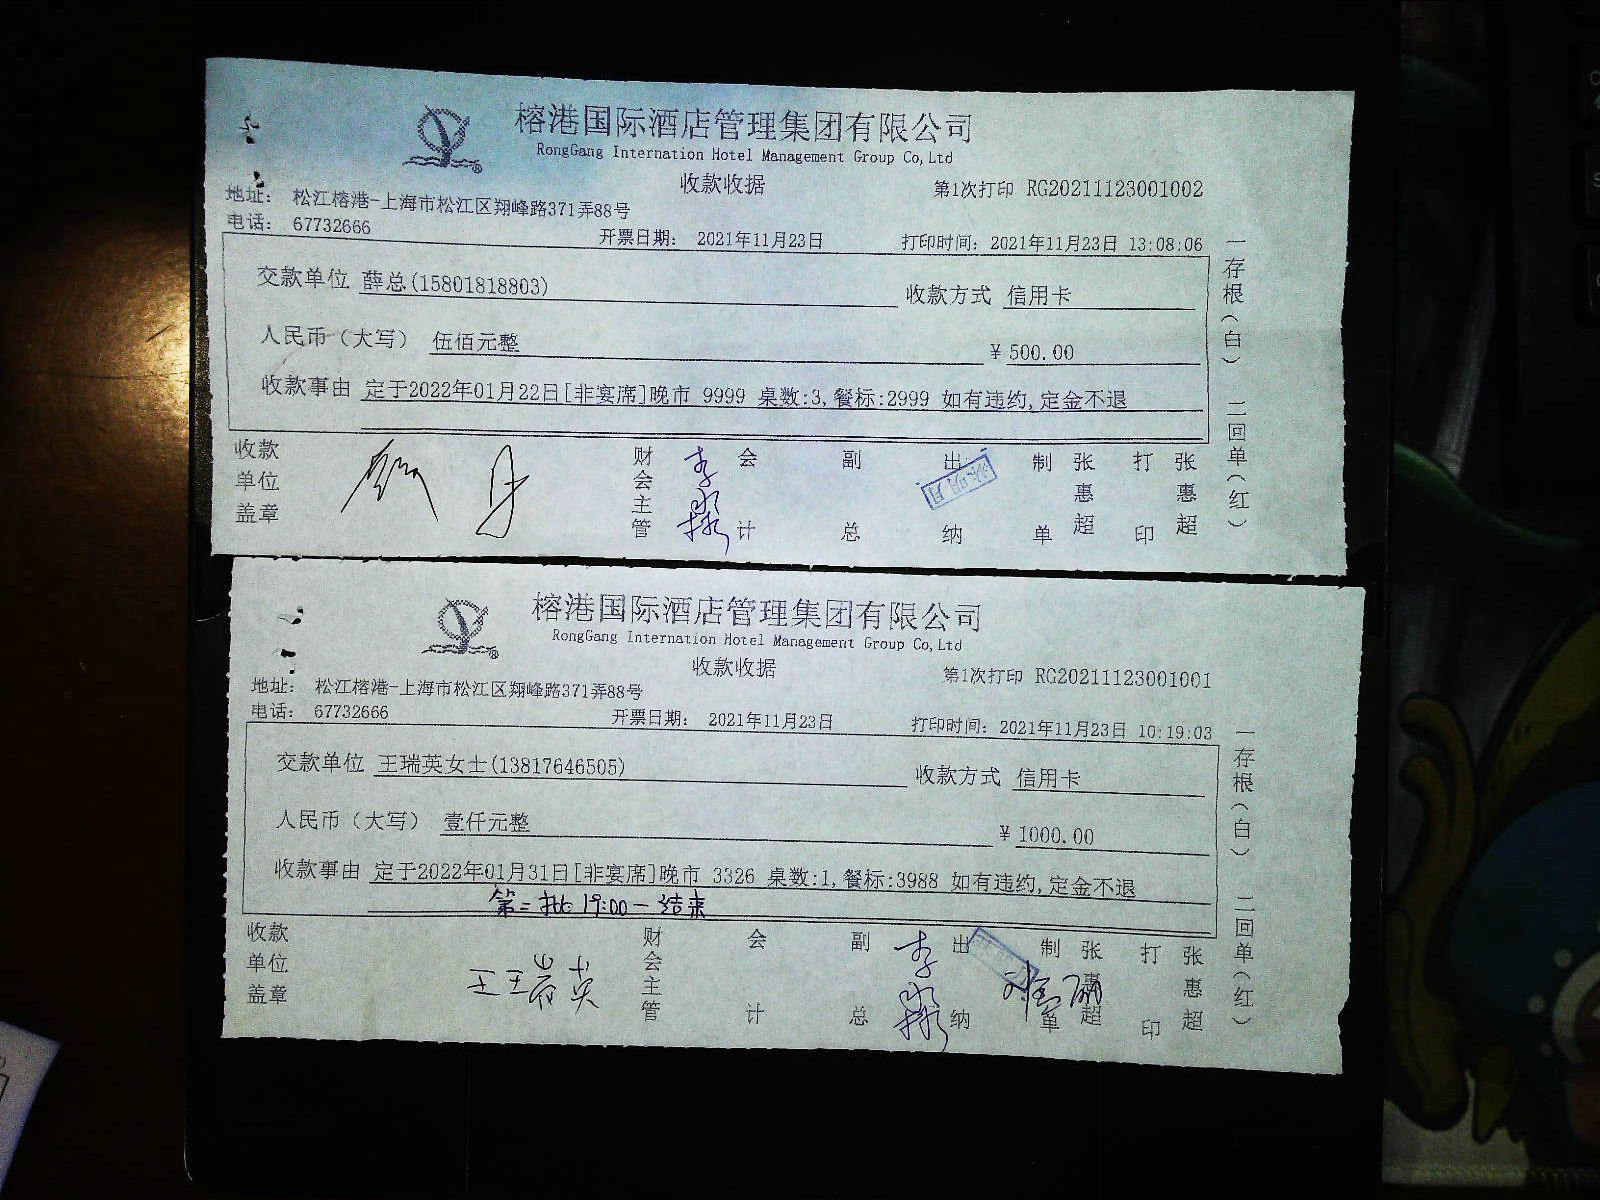 榕港国际酒店管理集团有限公司
RongGang Internation Hotel Management Group Co,Ltd
收款收据
第1次打印 RG20211123001002
地址： 松江榕港-上海市松江区翔峰路371弄88号
电话： 67732666
开票日期： 2021年11月23日
打印时间：2021年11月23日 13:08:06
交款单位 薛总(15801818803)
收款方式 信用卡
人民币（大写） 伍佰元整
¥ 500.00
收款事由 定于2022年01月22日[非宴席]晚市 9999 桌数:3,餐标:2999 如有违约,定金不退
收款单位盖章
财会主管
会计
副总
出纳
制单 张惠超
打印 张惠超
一存根（白） 二回单（红）
榕港国际酒店管理集团有限公司
RongGang Internation Hotel Management Group Co,Ltd
收款收据
第1次打印 RG20211123001001
地址： 松江榕港-上海市松江区翔峰路371弄88号
电话： 67732666
开票日期： 2021年11月23日
打印时间：2021年11月23日 10:19:03
交款单位 王瑞英女士(13817646505)
收款方式 信用卡
人民币（大写） 壹仟元整
¥ 1000.00
收款事由 定于2022年01月31日[非宴席]晚市 3326 桌数:1,餐标:3988 如有违约,定金不退
第二批 19:00一结束
收款单位盖章 王瑞英
财会主管
会计
副总
出纳
制单 张惠超
打印 张惠超
一存根（白） 二回单（红）